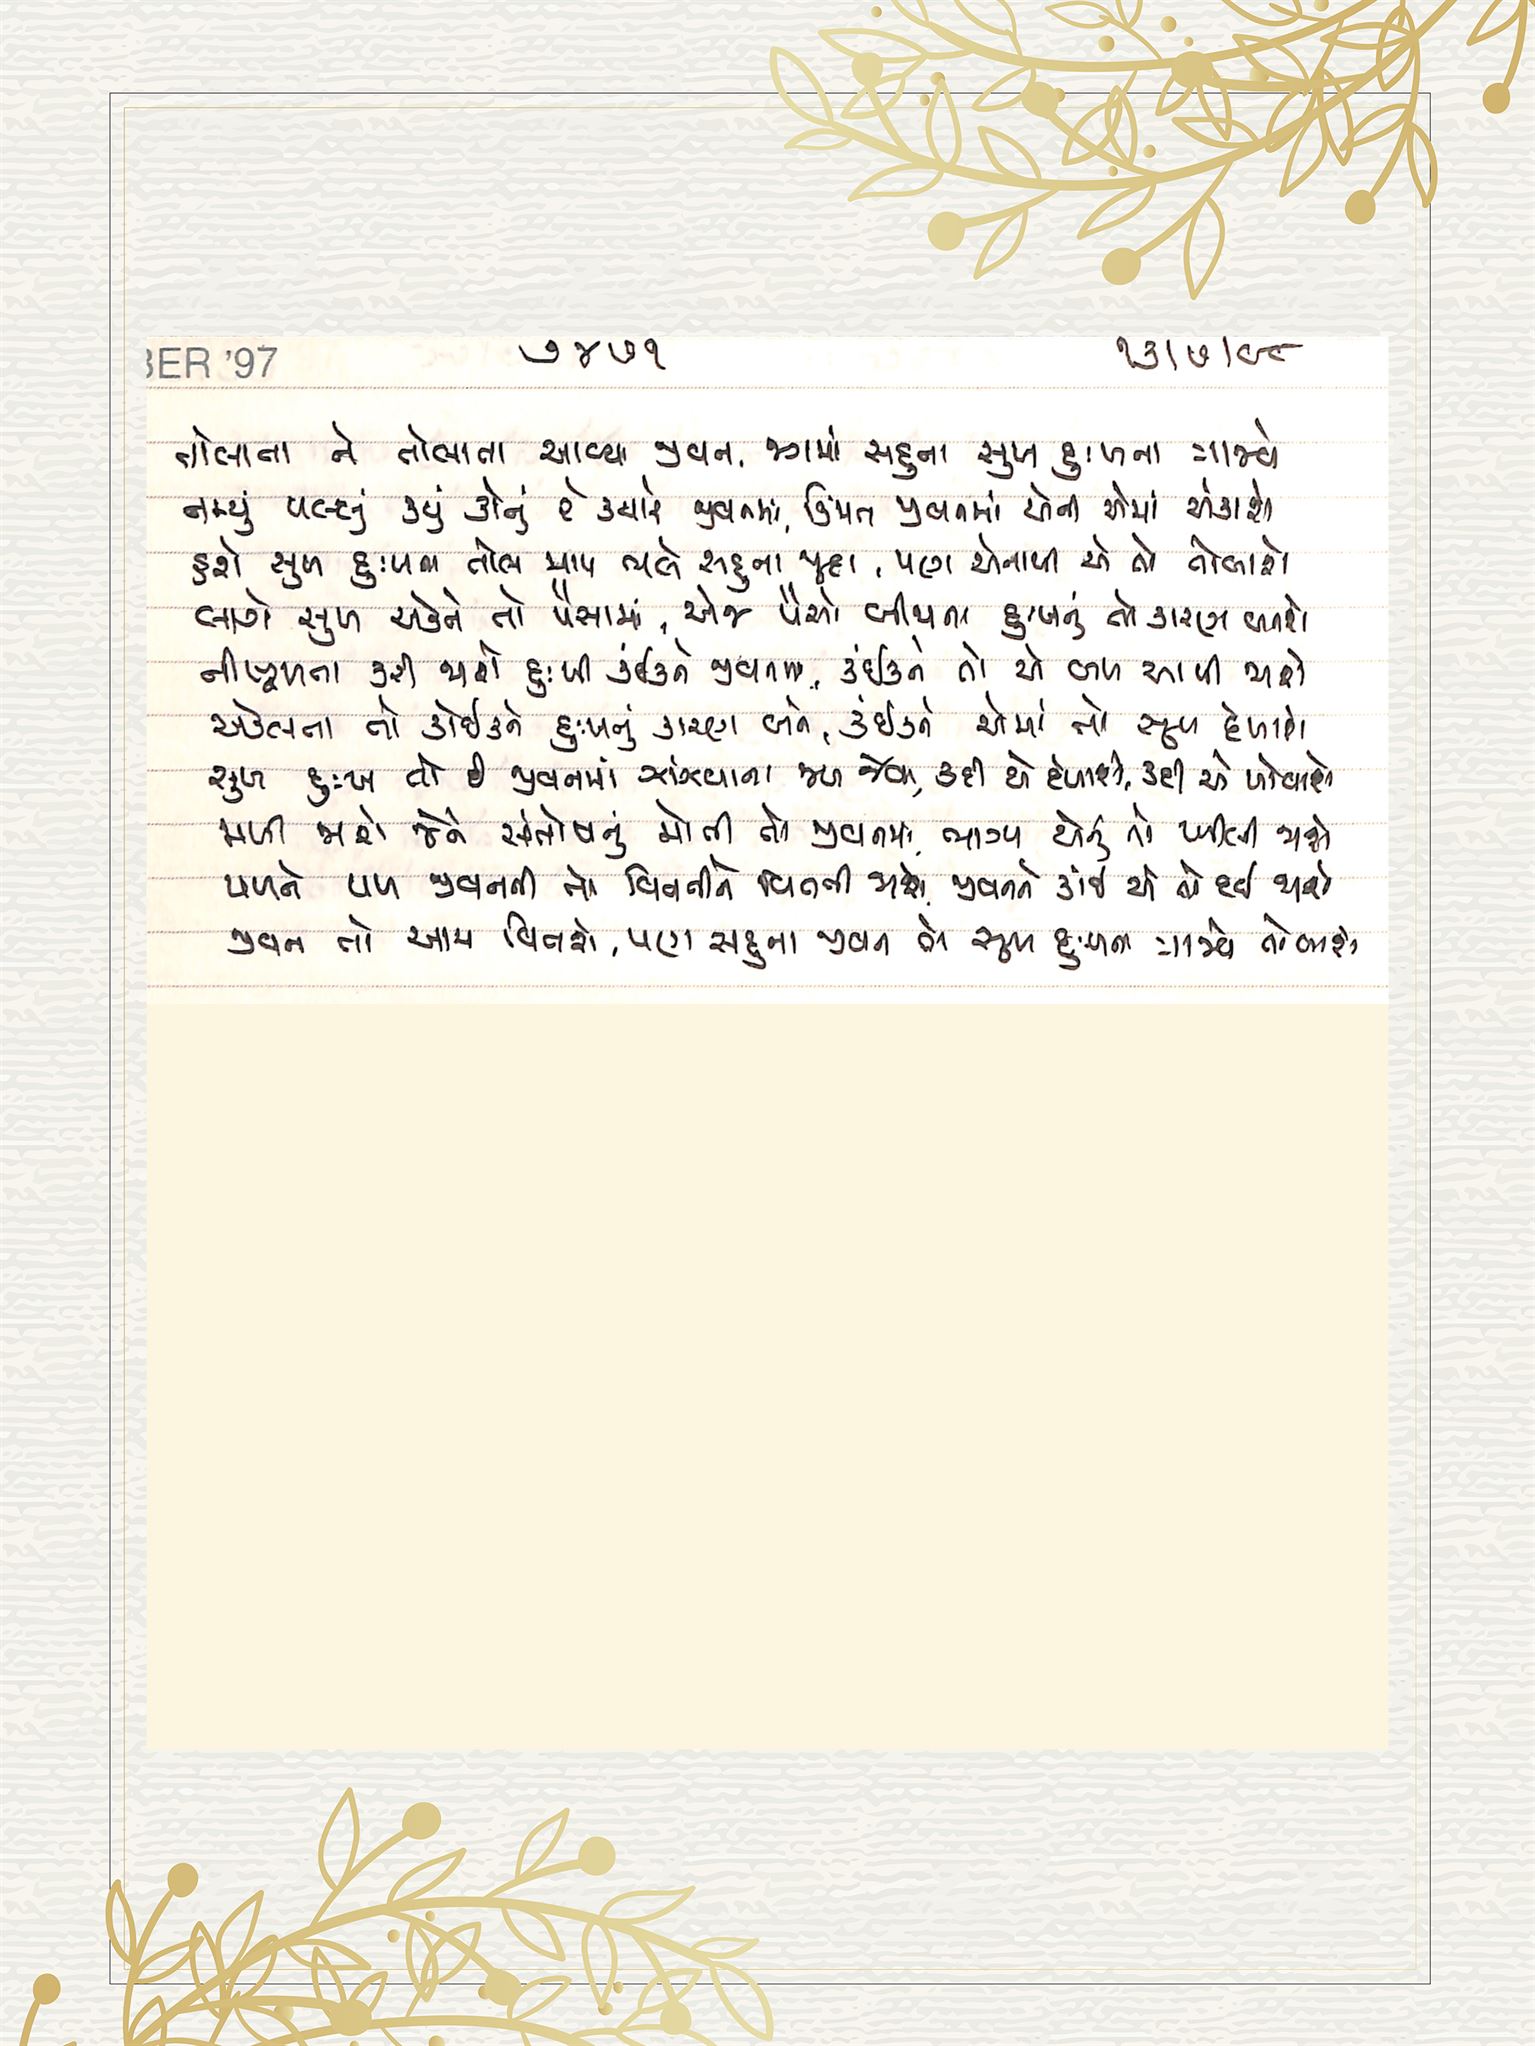 BER '97 ૭૪૭૧ ૧૩/૭/૯૮
તોલાતા ને તોલાતા આવ્યા જીવન, જગમાં સહુના સુખ દુઃખના ત્રાજવે
નમ્યું પલ્લું કયું કોનું રે ક્યારે જીવનમાં, કિંમત જીવનમાં એની એમાં અંકાશે
હશે સુખ દુઃખના તોલ માપ ભલે સહુના જુદા, પણ એનાથી એ તો તોલાશે
લાગે સુખ એકને તો પૈસામાં, એજ પૈસો બીજાના દુઃખનું તો કારણ બનશે
કરી જાશે દુઃખી કંઈકને જીવનમાં, કંઈકને તો એ બળ આપી જાશે
એકલતા તો કોઈકને દુઃખનું કારણ બને, કંઈકને એમાં તો સુખ દેખાશે
સુખ દુઃખ તો છે જીવનમાં ઝાંઝવાના જળ જેવા, કદી એ દેખાશે, કદી એ ખોવાશે
મળી જાશે જેને સંતોષનું મોતી તો જીવનમાં, ભાગ્ય એનું તો ખીલી જાશે
પળને પળ જીવનની તો વિતતીને વિતતી જાશે, જીવનને કાંઈ એ તો દઈ જાશે
જીવન તો આમ વિતશે, પણ સહુના જીવન તો સુખ દુઃખના ત્રાજવે તોલાશે